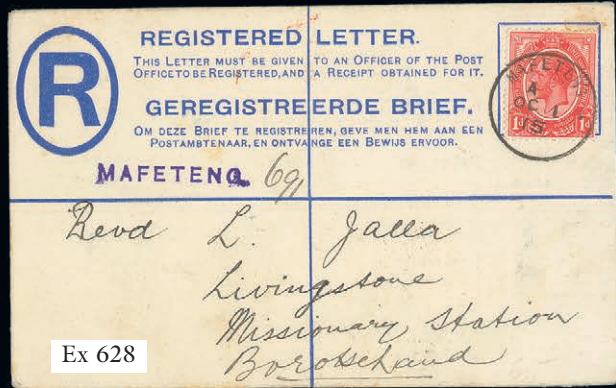 R
REGISTERED LETTER.
THIS LETTER MUST BE GIVEN TO AN OFFICER OF THE POST
OFFICE TO BE REGISTERED, AND A RECEIPT OBTAINED FOR IT.
GEREGISTREERDE BRIEF.
OM DEZE BRIEF TE REGISTREREN, GEVE MEN HEM AAN EEN
POSTAMBTENAAR, EN ONTVANGE EEN BEWIJS ERVOOR.
MAFETENG
A
OC 1
15
1d 1d
Revd L. Jalla
Livingstone
Missionary Station
Ex 628